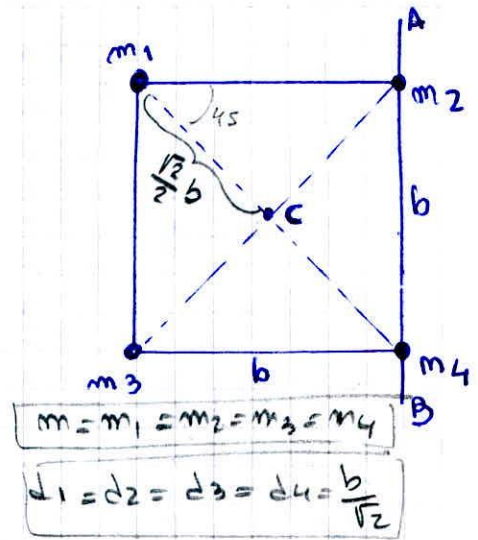 A
m1
m2
45
√2/2 b
c
b
m3
b
m4
B
m = m1 = m2 = m3 = m4
d1 = d2 = d3 = d4 = b/√2